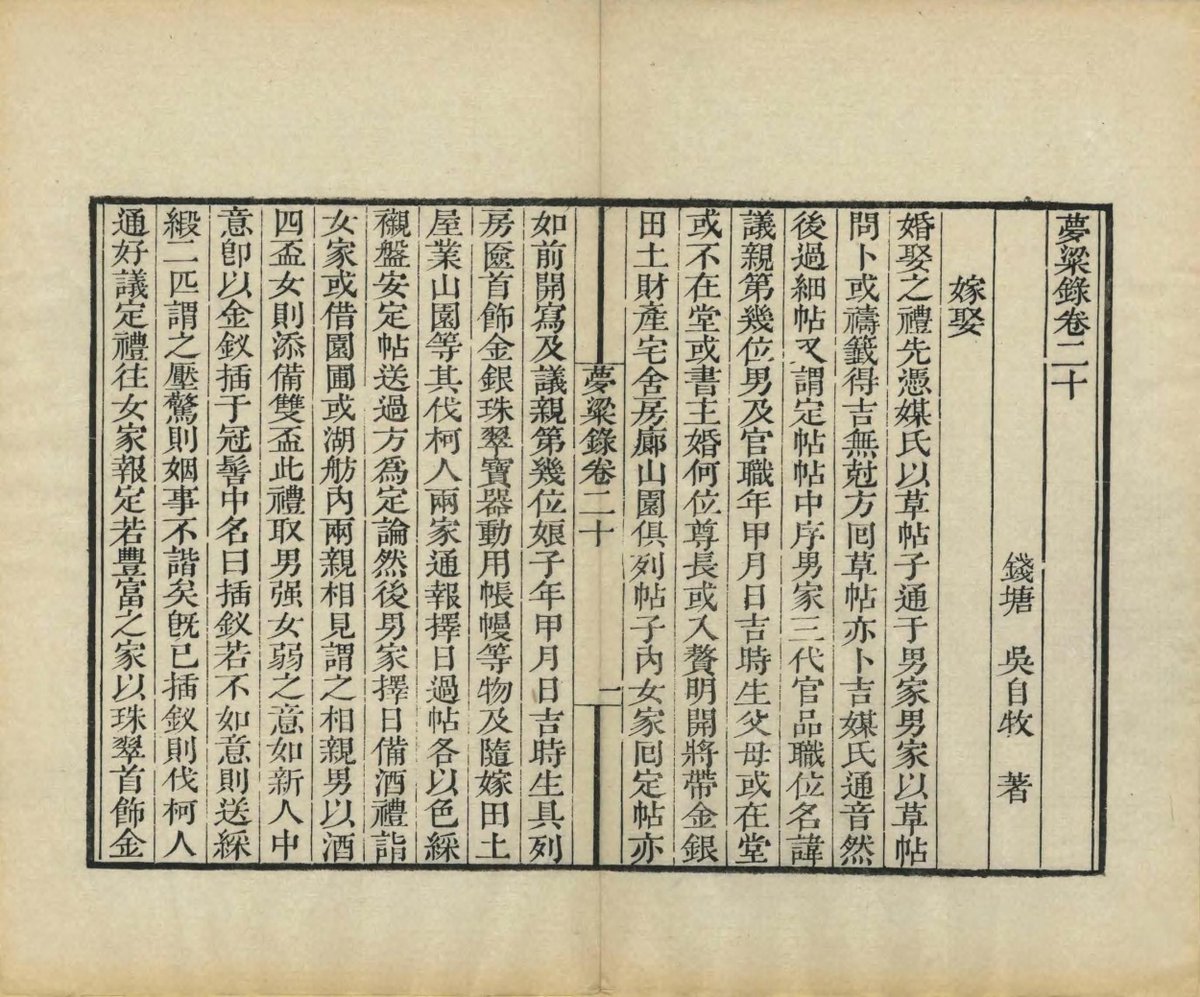 夢粱錄卷二十
錢塘 吳自牧 著
嫁娶
婚娶之禮先憑媒氏以草帖子通于男家男家以草帖
問卜或禱籤得吉無尅方回草帖亦卜吉媒氏通音然
後過細帖又謂定帖帖中序男家三代官品職位名諱
議親第幾位男及官職年甲月日吉時生父母或在堂
或不在堂或書主婚何位尊長或入贅明開將帶金銀
田土財產宅舍房廊山園俱列帖子內女家回定帖亦
夢粱錄卷二十
一
如前開寫及議親第幾位娘子年甲月日吉時生具列
房奩首飾金銀珠翠寶器動用帳幔等物及隨嫁田土
屋業山園等其伐柯人兩家通報擇日過帖各以色綵
襯盤安定帖送過方爲定論然後男家擇日備酒禮詣
女家或借園圃或湖舫內兩親相見謂之相親男以酒
四盃女則添備雙盃此禮取男强女弱之意如新人中
意卽以金釵插于冠髻中名曰插釵若不如意則送綵
緞二匹謂之壓驚則姻事不諧矣旣已插釵則伐柯人
通好議定禮往女家報定若豐富之家以珠翠首飾金